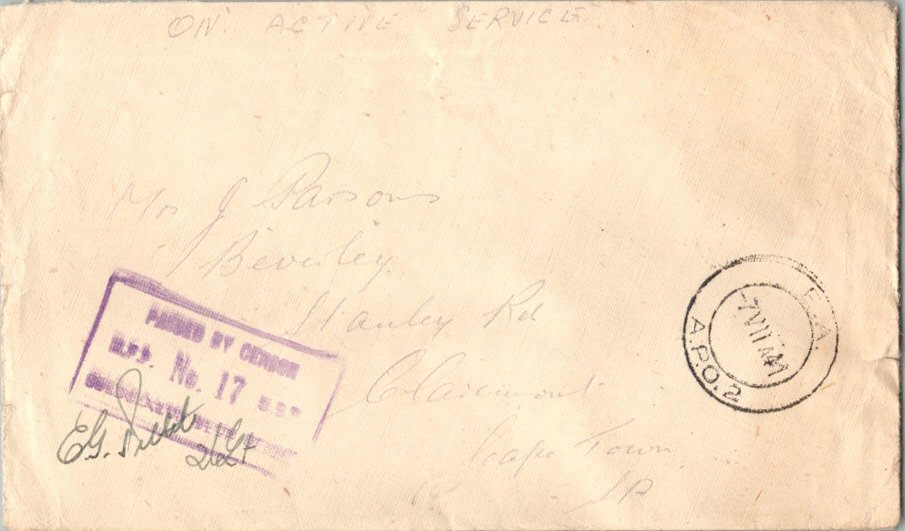 ON ACTIVE SERVICE
Mrs J Parsons
Beverley
Stanley Rd
Claremont
Cape Town
PASSED BY CENSOR
No. 17
E.G.
2/Lt
E.A.
7 VII 41
A.P.O.2